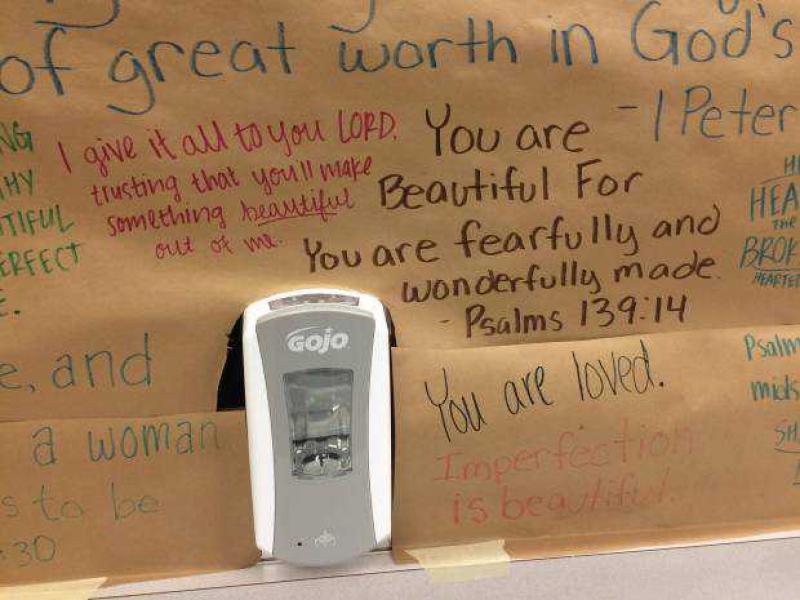 of great worth in God's
- 1 Peter
I give it all to you LORD.
trusting that you'll make
something beautiful
out of me.
You are
Beautiful For
You are fearfully and
wonderfully made.
- Psalms 139:14
NG
HY
TIFUL
ERFECT
E.
HEA
THE
BROK
HEARTED
e, and
a woman
s to be
:30
GOJO
You are loved.
Imperfection
is beautiful.
Psalm
mids